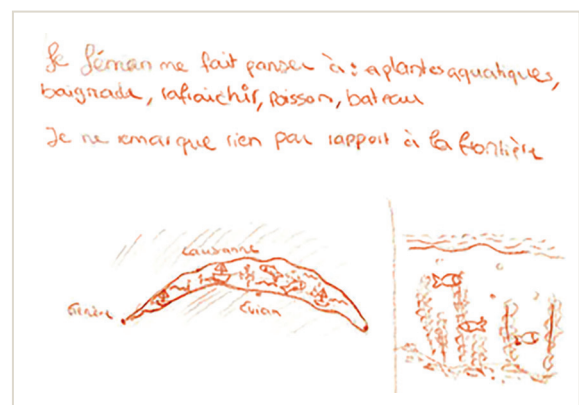 Le Léman me fait panser à : aplantes aquatiques,
baignade, rafraichir, poisson, bateau
Je ne remarque rien par rapport à la frontière
Lausanne
Genève
Evian